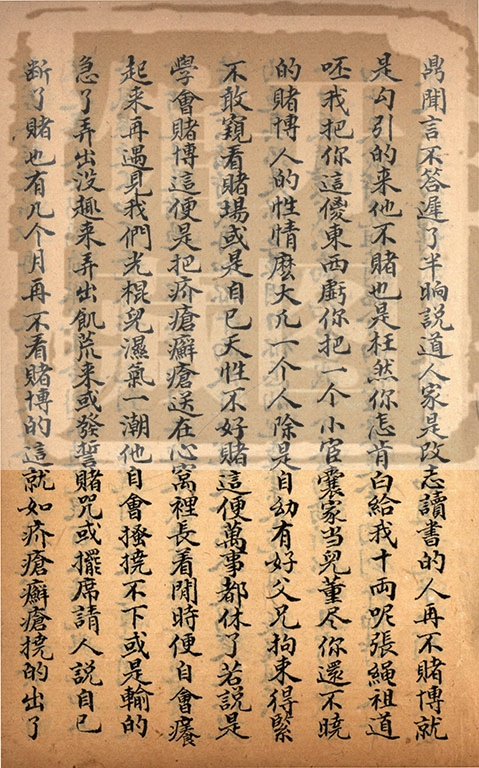 鼎聞言不答遲了半晌説道人家是改志讀書的人再不賭博就
是勾引的来他不賭也是枉然你怎肯白給我十両呢張繩祖道
呸我把你這傻東西虧你把一个小宦囊家当兒董尽你還不暁
的賭博人的性情麽大凢一个人除是自幼有好父兄拘束得緊
不敢窺看賭場或是自已天性不好賭這便萬事都休了若説是
學會賭博這便是把疥瘡癬瘡送在心窩裡長着閒時便自會癢
起来再遇見我們光棍兒濕氣一潮他自會搔撓不下或是輸的
急了弄出没趣来弄出飢荒来或發誓賭咒或擺席請人説自已
断了賭也有几个月再不看賭博的這就如疥瘡癬瘡撓的出了